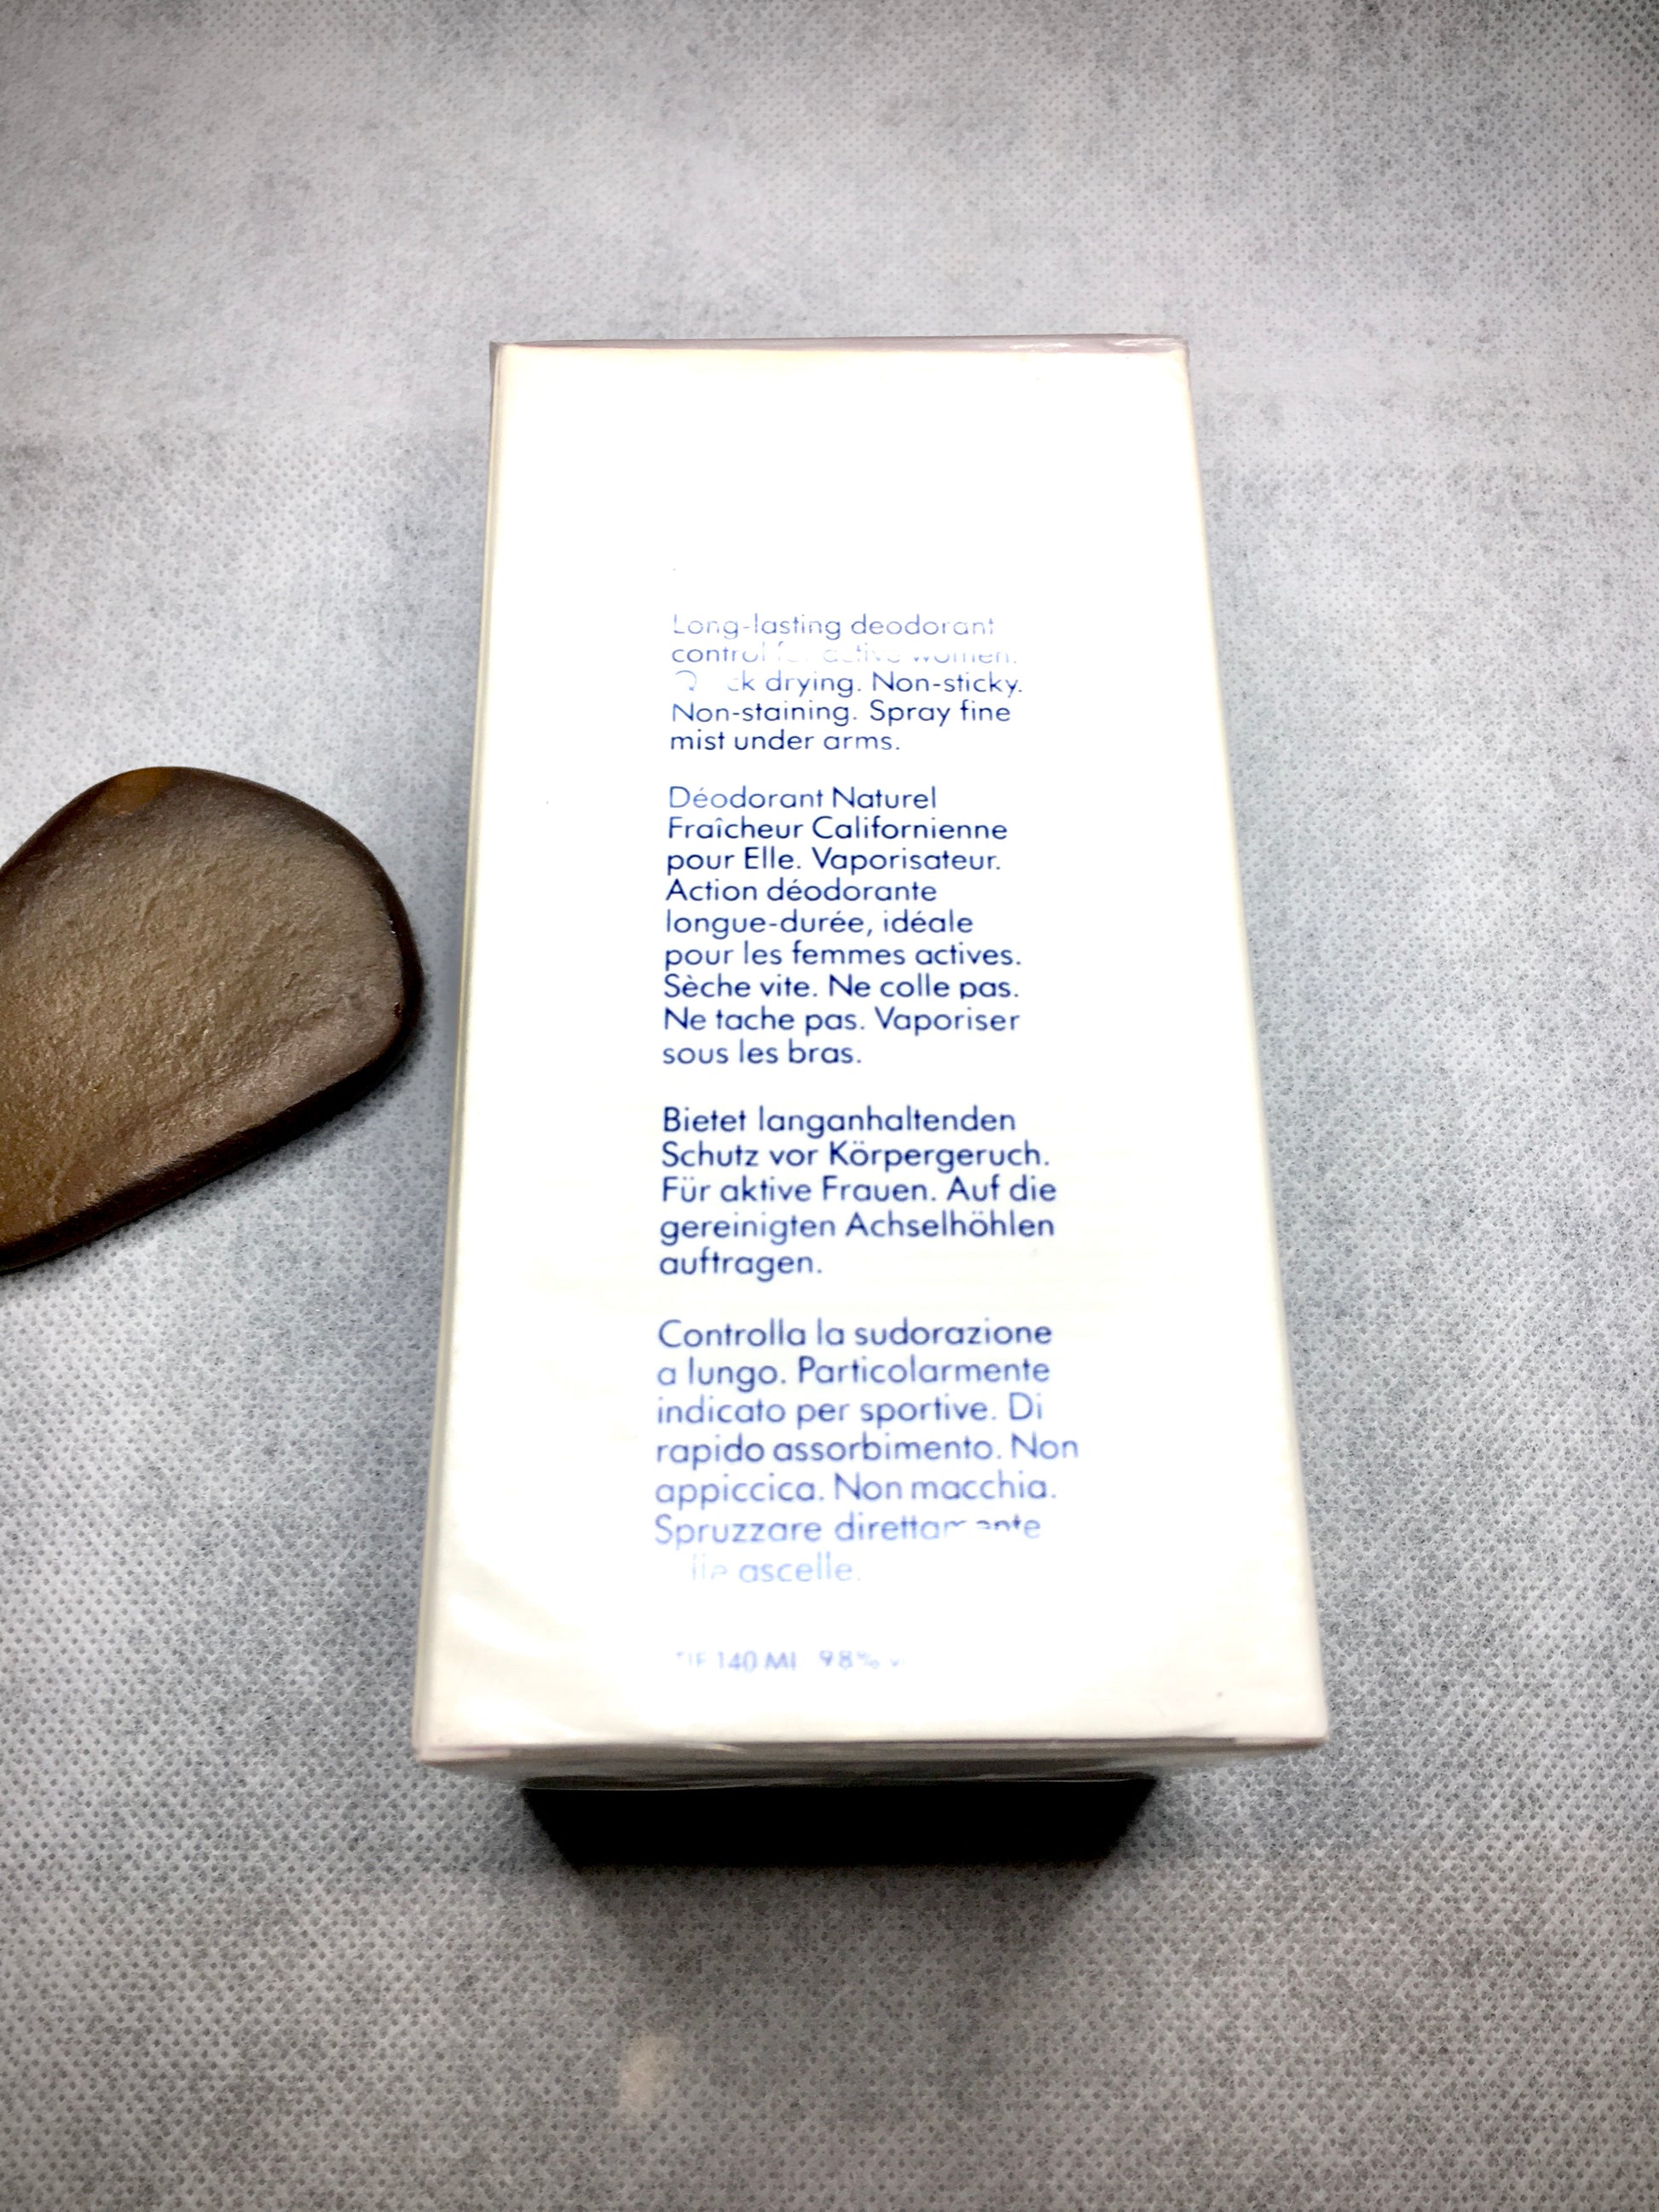 Long-lasting deodorant
control active women.
drying. Non-sticky.
Non-staining. Spray fine
mist under arms.
Déodorant Naturel
Fraîcheur Californienne
pour Elle. Vaporisateur.
Action déodorante
longue-durée, idéale
pour les femmes actives.
Sèche vite. Ne colle pas.
Ne tache pas. Vaporiser
sous les bras.
Bietet langanhaltenden
Schutz vor Körpergeruch.
Für aktive Frauen. Auf die
gereinigten Achselhöhlen
auftragen.
Controlla la sudorazione
a lungo. Particolarmente
indicato per sportive. Di
rapido assorbimento. Non
appiccica. Non macchia.
Spruzzare direttamente
ascelle.
140 ML 98%